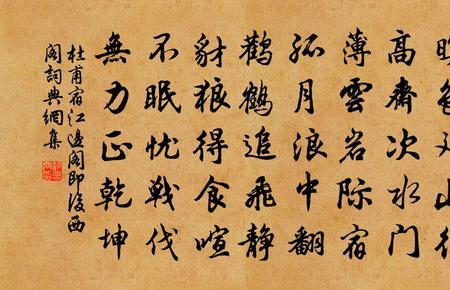 高齋次水門
薄雲岩際宿
孤月浪中翻
鸛鶴追飛靜
豺狼得食喧
不眠忧戰伐
無力正乾坤
杜甫宿江邊閣即後西
閣詞典網集